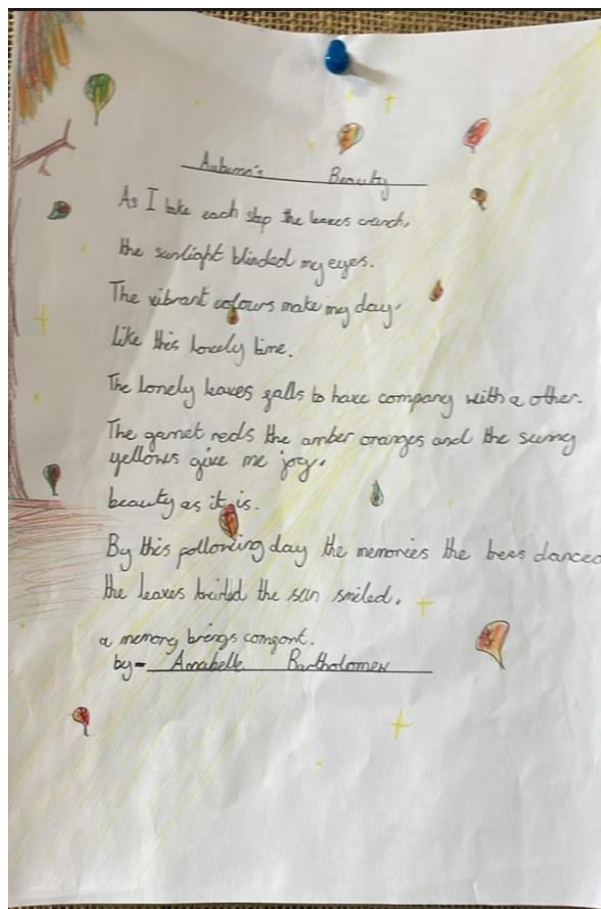 Autumn's Beauty
As I take each step the leaves crunch,
the sunlight blinded my eyes.
The vibrant colours make my day,
like this lovely time.
The lonely leaves falls to have company with a other.
The garnet reds the amber oranges and the sunny
yellows give me joy,
beauty as it is.
By this following day the memories the trees danced
the leaves twirled the sun smiled,
a memory brings comfort.
by- Annabelle Bartholomew